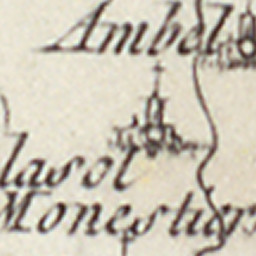 Ambel
lasot
Monestiers